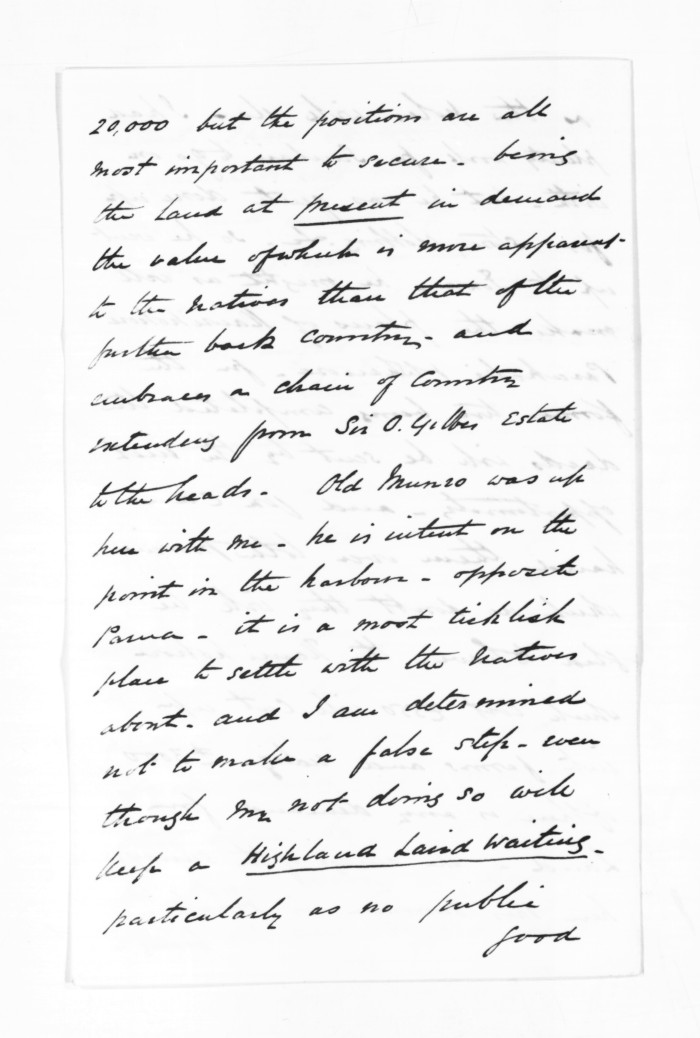 20,000 but the positions are all
most important to secure - being
the Land at present in demand
the value of which is more apparent -
to the Natives than that of the
further back Country, and
embraces a chain of Country
extending from Sir O. Gibbes Estate
to the heads - Old Munro was up
here with me - he is intent on the
point in the harbour - opposite
Parua - it is a most ticklish
place to settle with the Natives
about - and I am determined
not to make a false step - even
though my not doing so will
keep a Highland Laird waiting -
particularly as no public
good